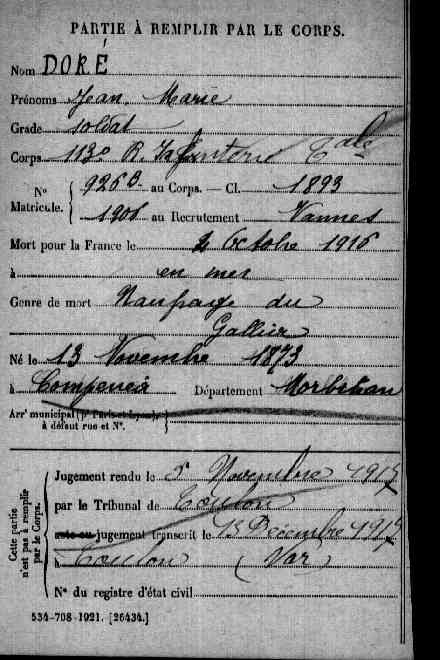 PARTIE À REMPLIR PAR LE CORPS.
Nom DORÉ
Prénoms Jean Marie
Grade soldat
Corps 113e R. Infanterie Cale
N° Matricule. { 926 B. au Corps. — Cl. 1893
1906 au Recrutement Vannes
Mort pour la France le 2 Octobre 1916
à en mer
Genre de mort Naufrage du
Gallia
Né le 13 Novembre 1873
à Campénéac Département Morbihan
Arr' municipal (pr Paris et Lyon), à défaut rue et N°.
Cette partie n'est pas à remplir par le Corps.
Jugement rendu le 5 Novembre 1917
par le Tribunal de Toulon
acte ou jugement transcrit le 13 Décembre 1917
à Toulon (Var)
N° du registre d'état civil
534-708-1921. [26434.]